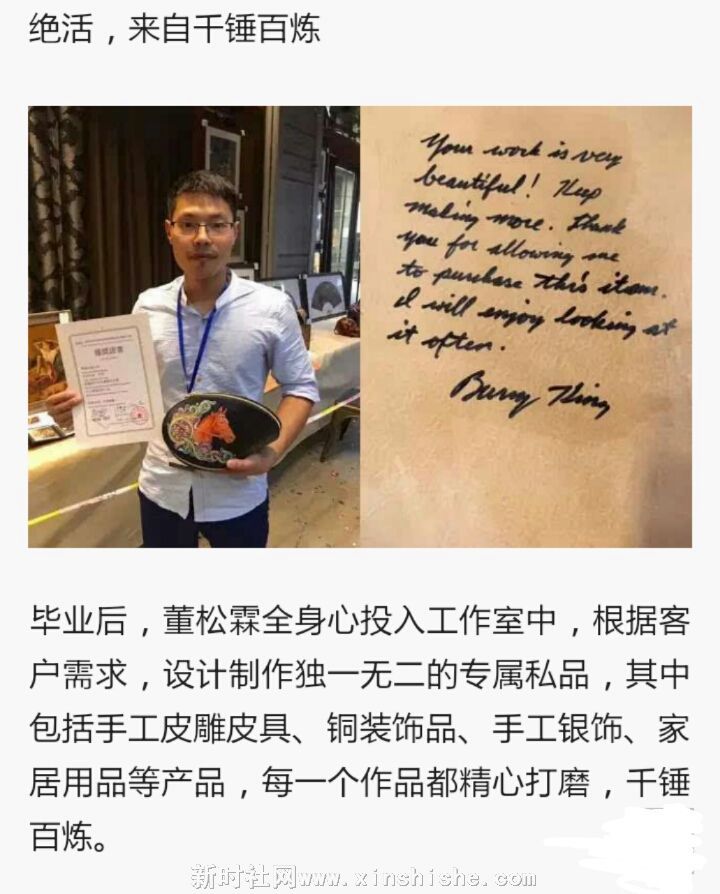 绝活，来自千锤百炼
獲獎證書
Your work is very
beautiful! Keep
making more. Thank
you for allowing me
to purchase this item.
I will enjoy looking at
it often.
Barry King
毕业后，董松霖全身心投入工作室中，根据客
户需求，设计制作独一无二的专属私品，其中
包括手工皮雕皮具、铜装饰品、手工银饰、家
居用品等产品，每一个作品都精心打磨，千锤
百炼。
新时社网www.xinshishe.com